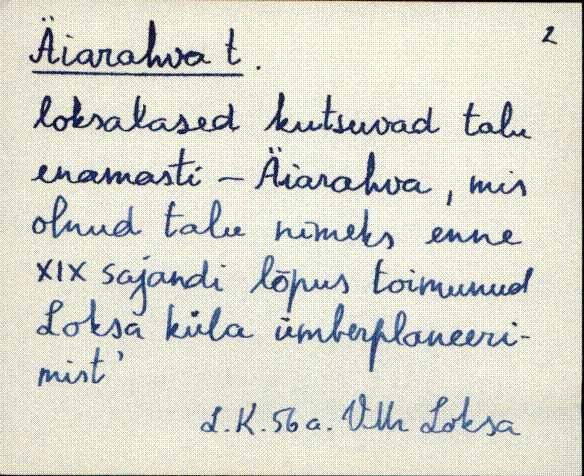 2
Äiarahva t.
loksalased kutsuvad talu
enamasti – Äiarahva, mis
olnud talu nimeks enne
XIX sajandi lõpus toimunud
Loksa küla ümberplaneeri-
mist'
L.K. 56 a. Loksa